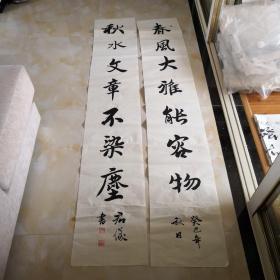 春風大雅能容物
癸巳年
秋月
秋水文章不染塵
君儀
書